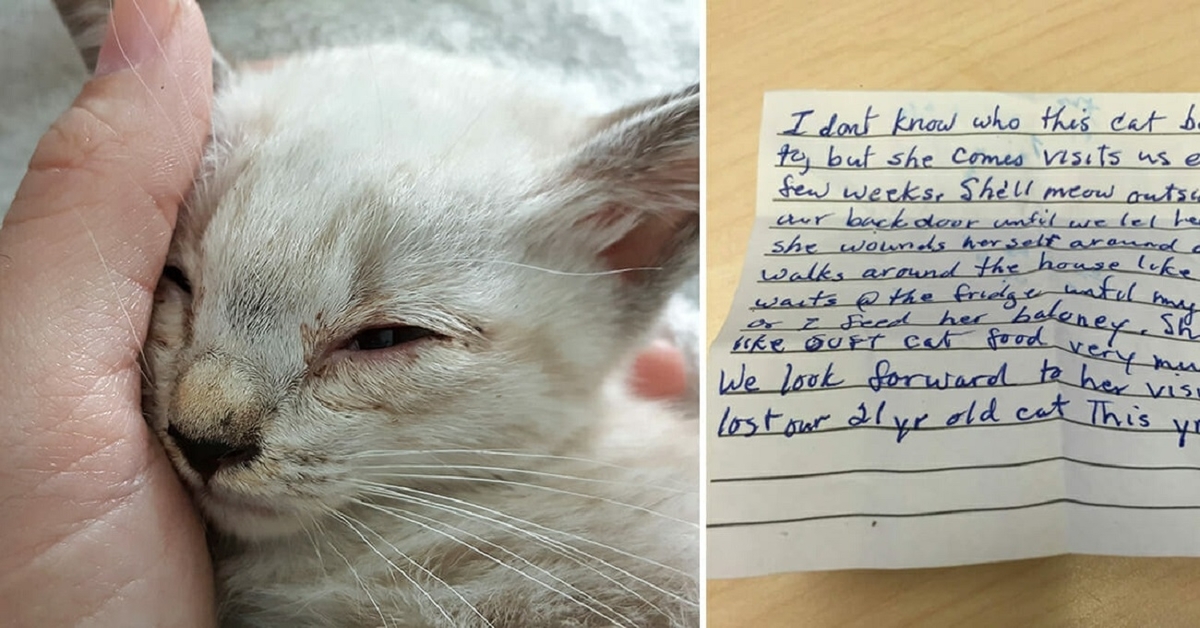 I dont know who this cat b
to, but she comes visits us e
few weeks. She'll meow outs
our back door until we let he
she wounds herself around
walks around the house like
waits @ the fridge until my
or I feed her baloney. Sh
like cat food very mu
We look forward to her vis
lost our 21 yr old cat This yr